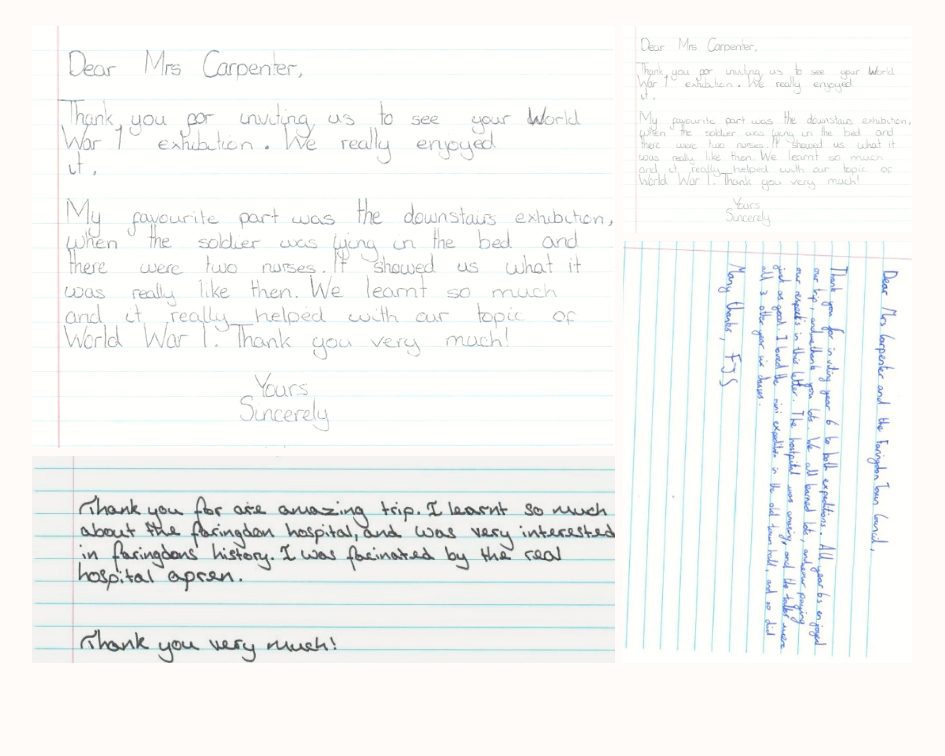 Dear Mrs Carpenter,
Thank you for inviting us to see your World
War 1 exhibition. We really enjoyed
it.
My favourite part was the downstairs exhibition,
when the soldier was lying in the bed and
there were two nurses. It showed us what it
was really like then. We learnt so much
and it really helped with our topic of
World War 1. Thank you very much!
Yours
Sincerely
Thank you for are amazing trip. I learnt so much
about the faringdon hospital, and was very interested
in faringdons history. I was facinated by the real
hospital apren.
Thank you very much!
Dear Mrs Carpenter,
Thank you for inviting us to see your World
War 1 exhibition. We really enjoyed
it.
My favourite part was the downstairs exhibition,
when the soldier was lying in the bed and
there were two nurses. It showed us what it
was really like then. We learnt so much
and it really helped with our topic of
World War 1. Thank you very much!
Yours
Sincerely
Dear Mrs Carpenter and the Faringdon Town Council,
Thank you for inviting year 6 to both expeditions. All year 6s enjoyed
our trip, and thank you lots. We all learned lots, and paying
our respects in this letter. The hospital was amazing, and the were
just as good. I loved the mini expedition in the old town hall, and so did
all 3 other year six classes.
Many thanks, FJS